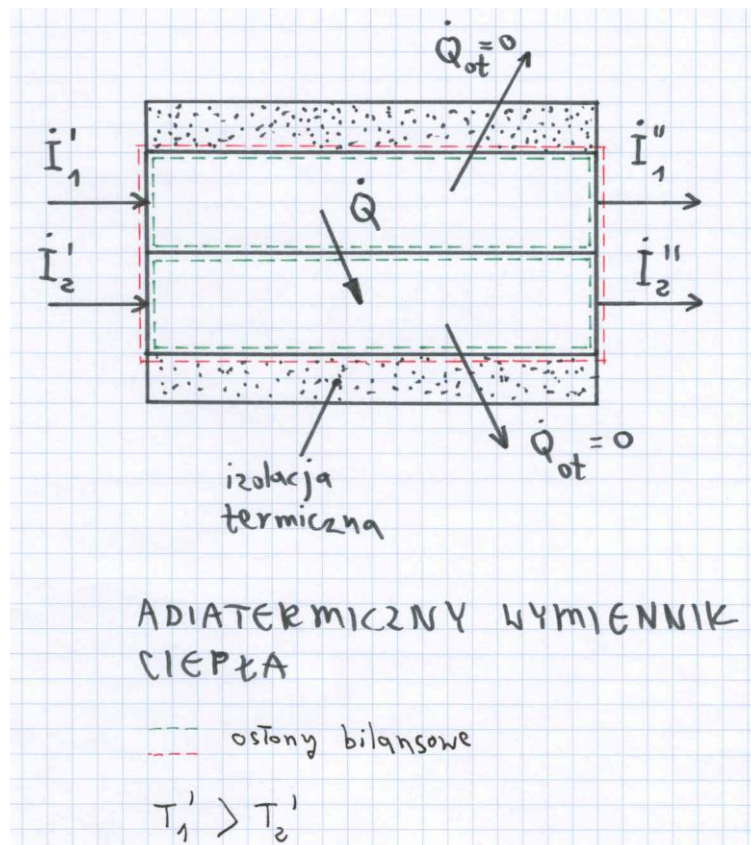 Q̇ot = 0
İ1'
İ1''
Q̇
İ2'
İ2''
Q̇ot = 0
izolacja
termiczna
ADIATERMICZNY WYMIENNIK
CIEPŁA
osłony bilansowe
T1' > T2'